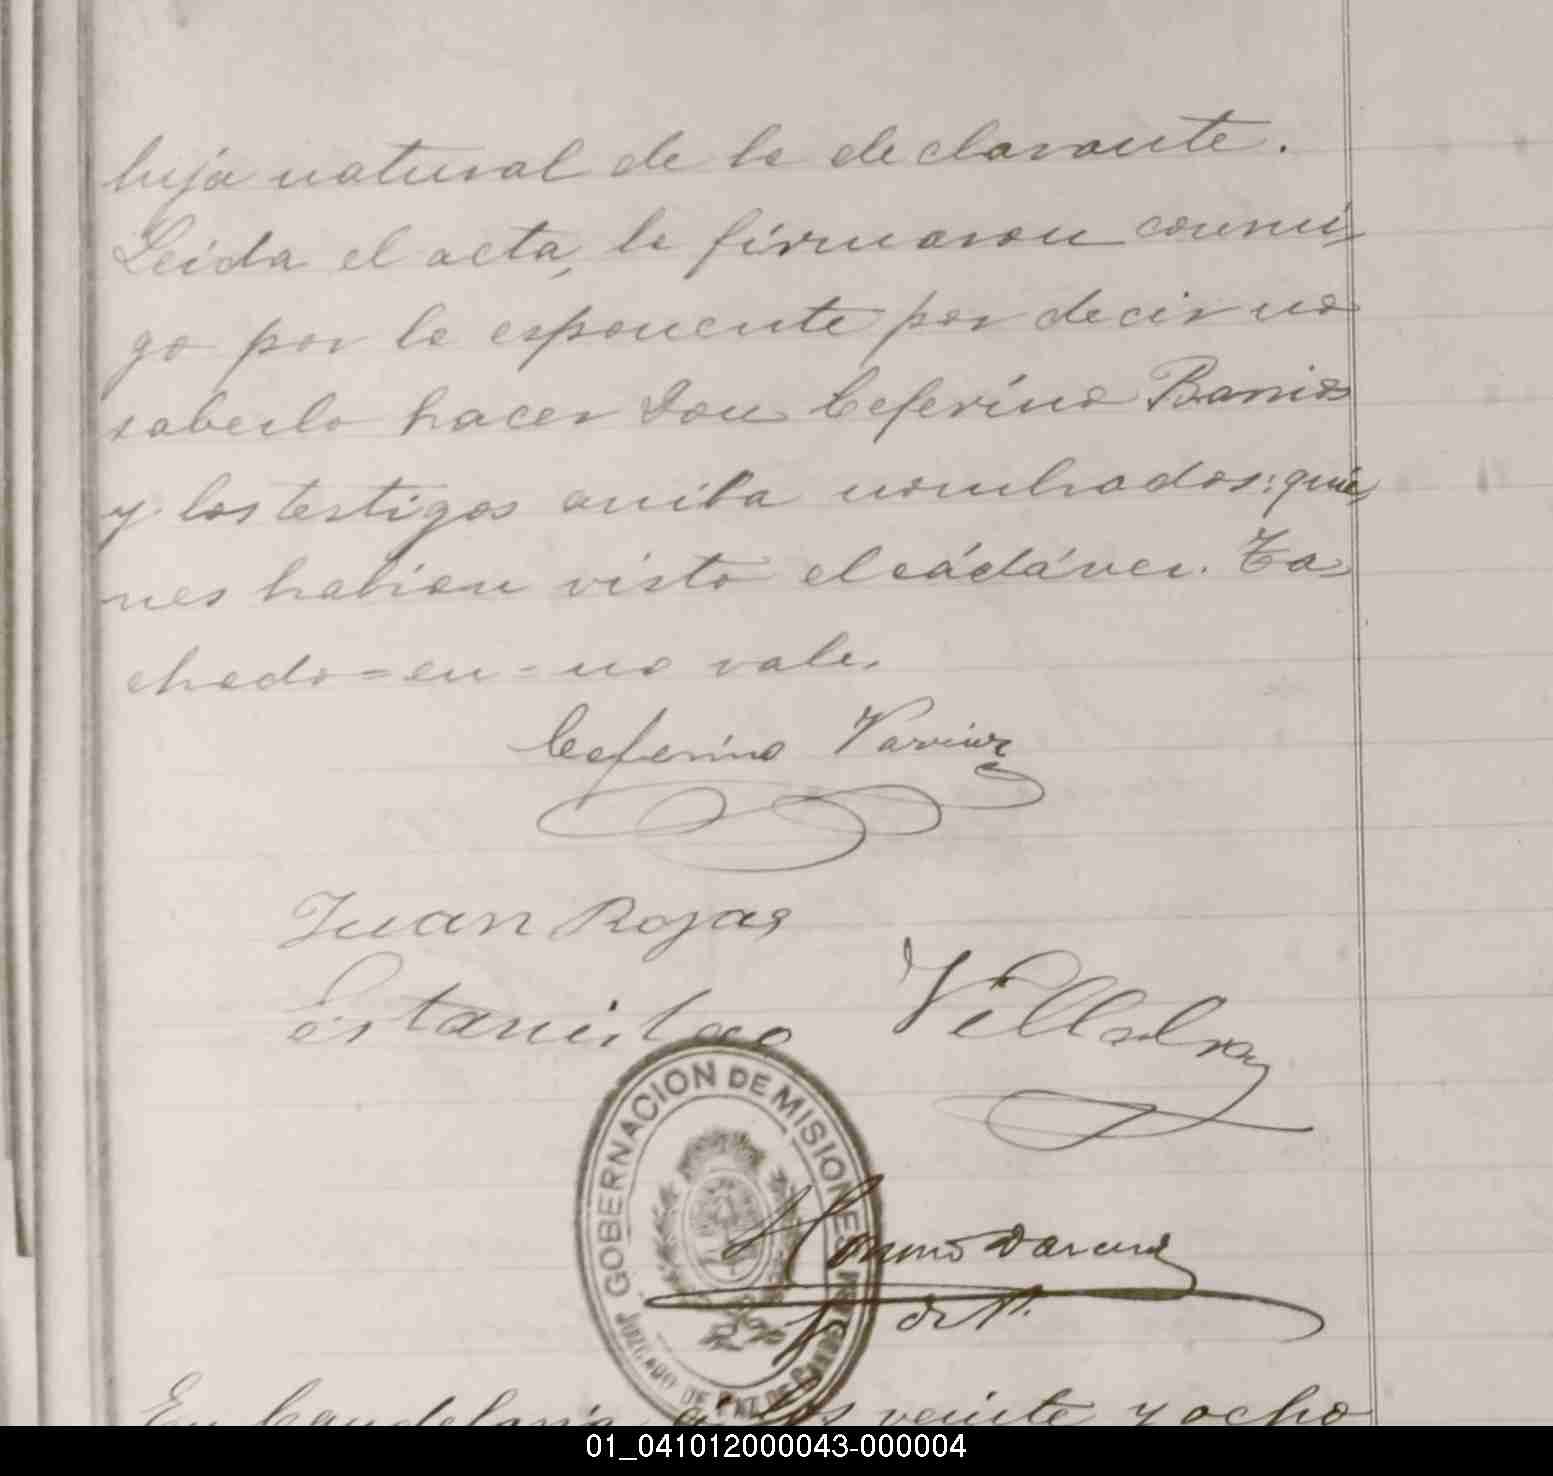 hija natural de la declarante.
Leida el acta, la firmaron conmi-
go por la esponente por decir no
saberlo hacer Don Ceferino Barrios
y los testigos arriba nombrados; quie-
nes habian visto el cádáver. Ta-
chado=en=no vale.
Ceferino
Juan Rojas
Estanislao Villalva
GOBERNACION DE MISIONES
JUZGADO DE PAZ DE
J. de P.
En Candelaria á los veinte y ocho
01_041012000043-000004